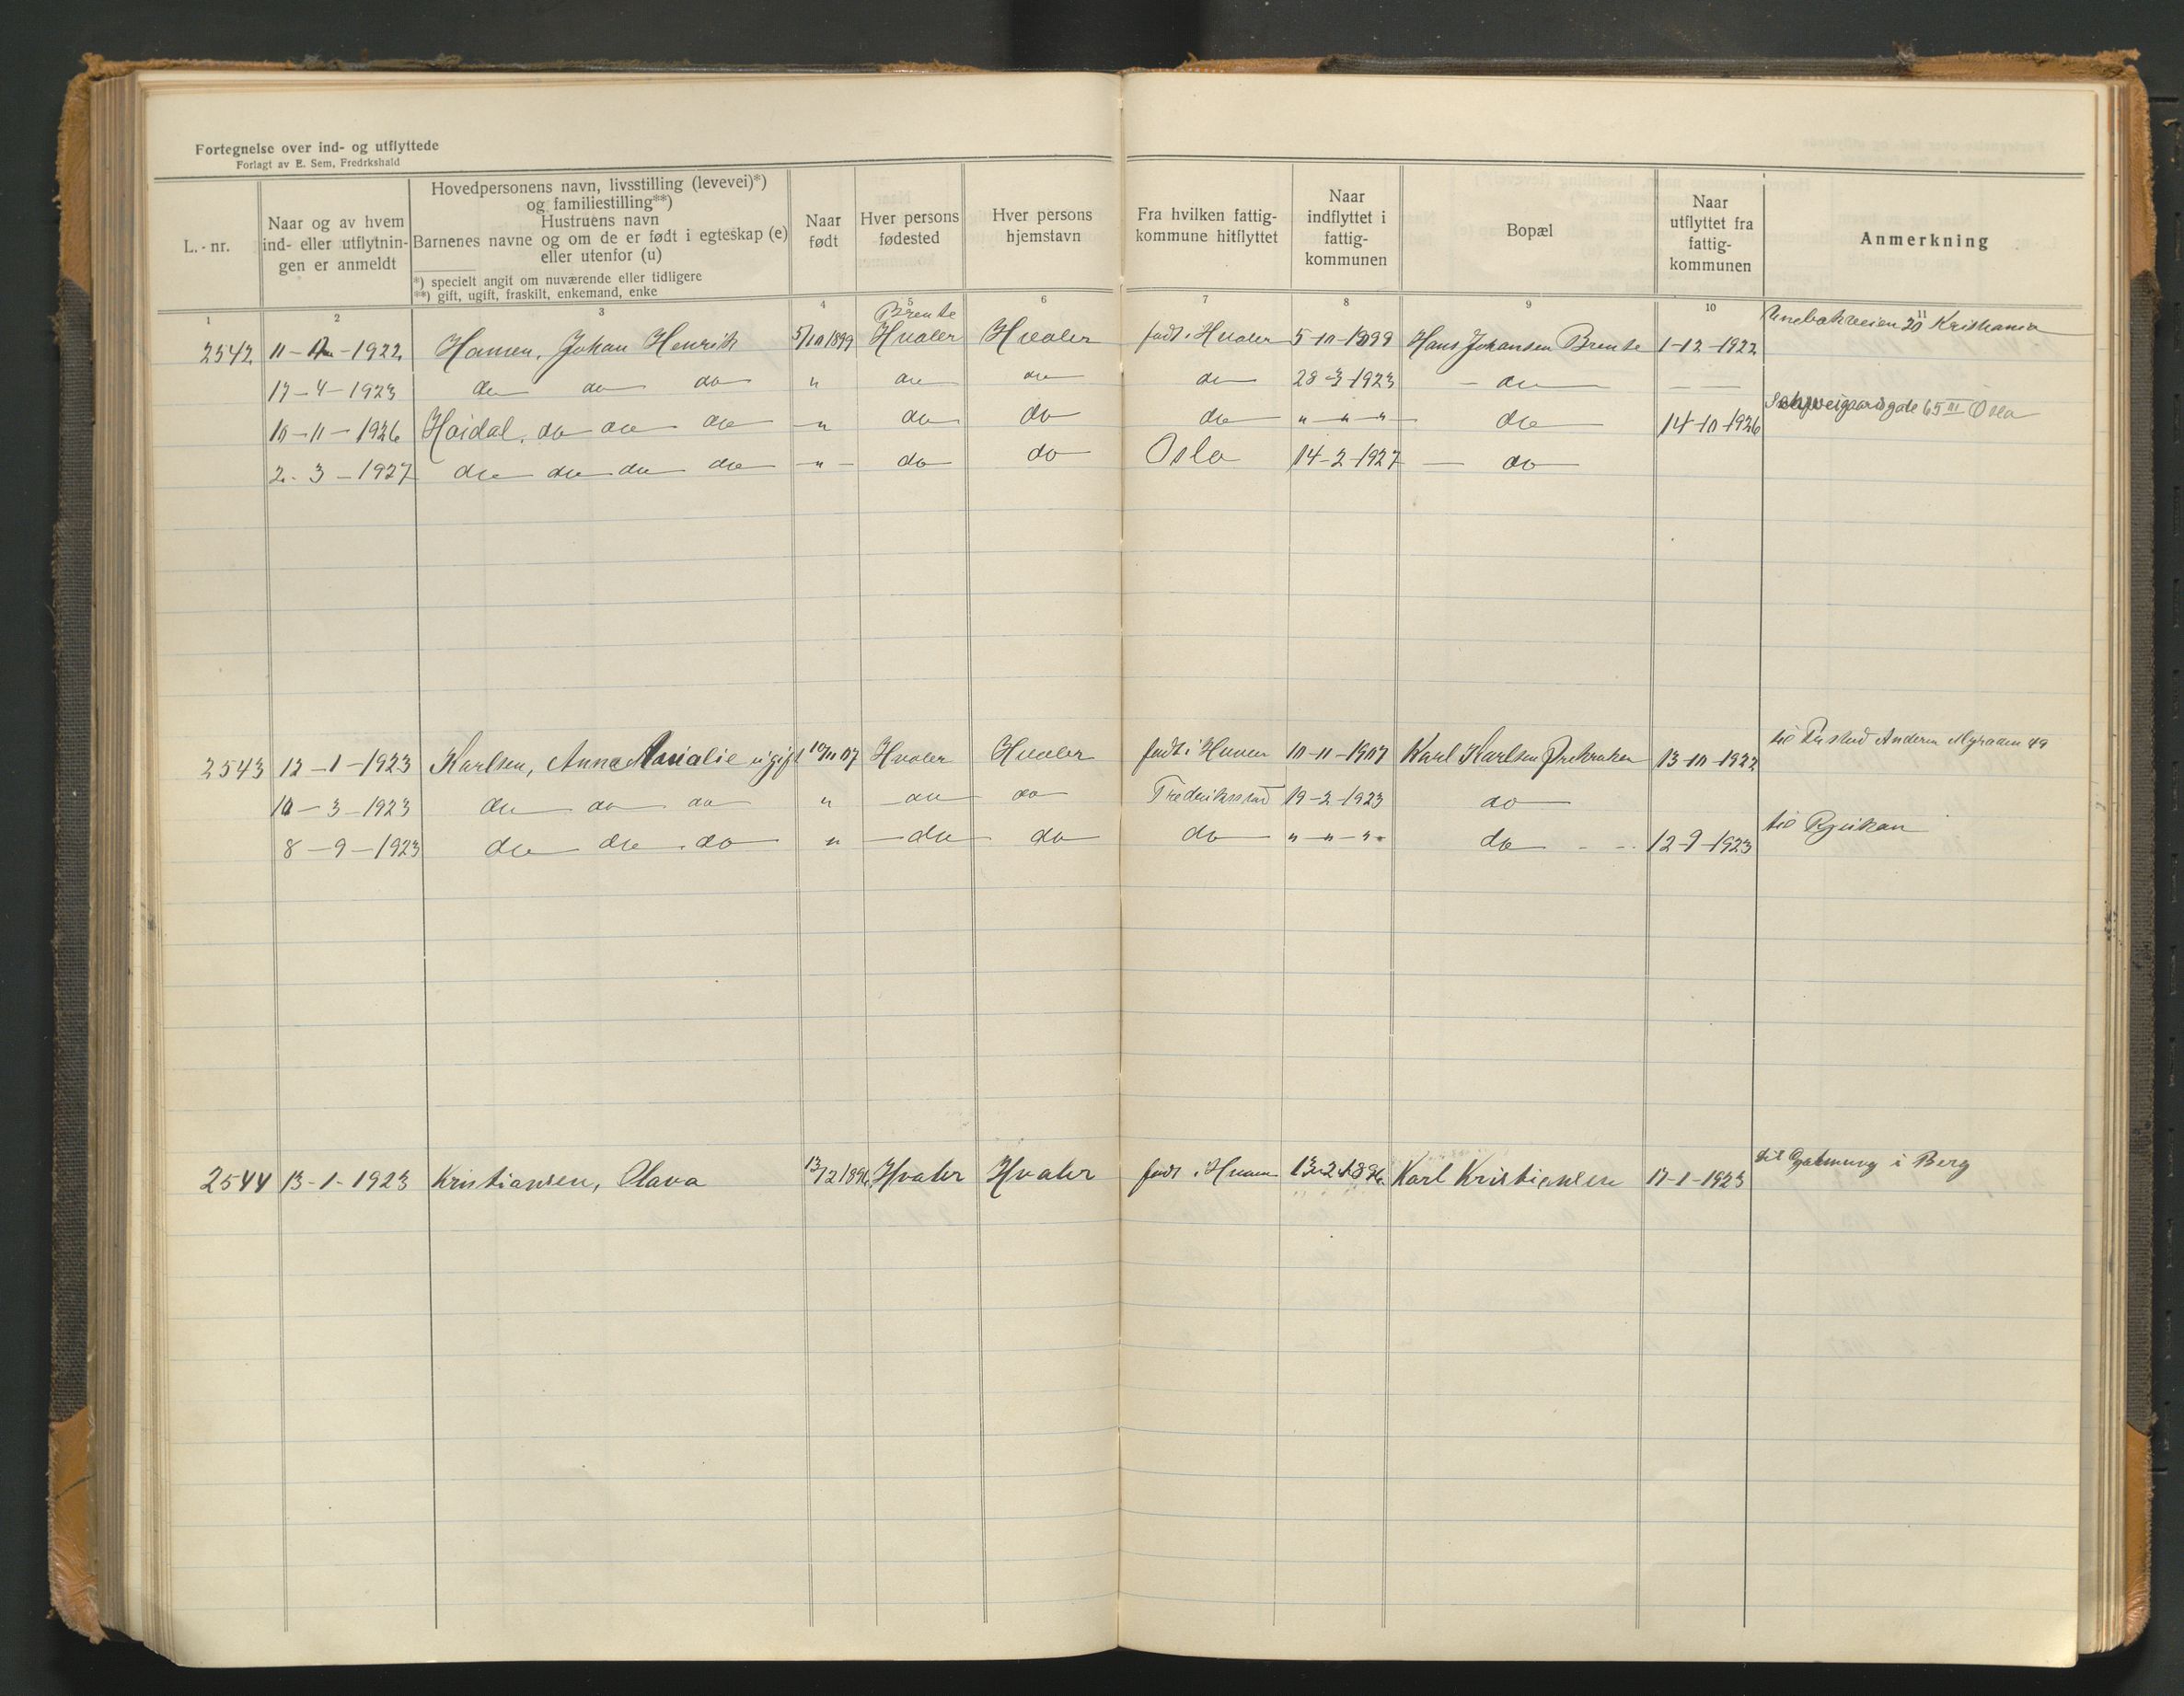 Fortegnelse over ind- og utflyttede
Forlagt av E. Sem, Fredrkshald
L.-nr.
Naar og av hvem
ind- eller utflytnin-
gen er anmeldt
Hovedpersonens navn, livsstilling (levevei)*)
og familiestilling**)
Hustruens navn
Barnenes navne og om de er født i egteskap (e)
eller utenfor (u)
*) specielt angit om nuværende eller tidligere
**) gift, ugift, fraskilt, enkemand, enke
Naar
født
Hver persons
fødested
Hver persons
hjemstavn
Fra hvilken fattig-
kommune hitflyttet
Naar
indflyttet i
fattig-
kommunen
Bopæl
Naar
utflyttet fra
fattig-
kommunen
Anmerkning
1 2 3 4 5 6 7 8 9 10 11
Brente
2542 11 - 1922 Hansen, Johan Henrik 5/10 1899 Hvaler Hvaler født i Hvaler 5-10-1899 Hans Johansen Brente 1-12-1922 20 Kristiania
17-4-1923 do do do " do do do 28-3-1923 - do - - -
10-11-1926 Høidal, do do do " do do do " - " - " do 14-10-1926 Schweigaardsgate 65 III Oslo
2-3-1927 do do do do - " - do do Oslo 14-2-1927 - do
2543 12-1-1923 Karlsen, Anna Amalie ugift 10/11 07 Hvaler Hvaler født i Hvaler 10-11-1907 Karl Karlsen 13-10-1922 til 49
10-3-1923 do do do " do do Fredriksstad 19-2-1923 do
8-9-1923 do do do " do do do " - " - " do 12-9-1923 til Rjukan
2544 13-1-1923 Kristiansen, Olava 13/2 1896 Hvaler Hvaler født i Hvaler 13-2-1896 Karl Kristiansen 17-1-1923 til i Berg